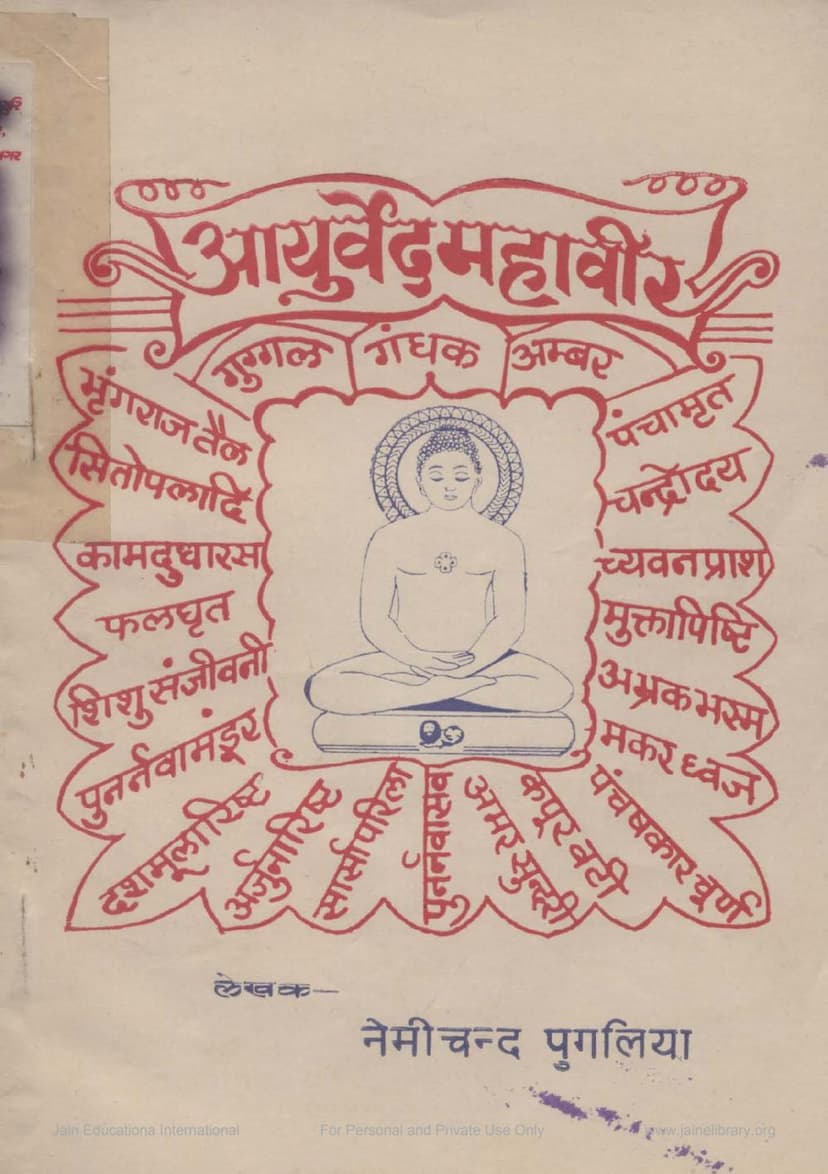 आयुर्वेद महावीर
गुग्गल
गंधक
अम्बर
भृंगराज तैल
सितोपलादि
कामदुधारस
फलघृत
शिशु संजीवनी
पुनर्नवामंडूर
दशमूलारिष्ट
अर्जुनारिष्ट
सार्सापरिला
पुनर्नवासव
अमर सुन्दरी
कपूर वटी
पंचषकार चूर्ण
पंचामृत
चन्द्रोदय
च्यवनप्राश
मुक्तापिष्टि
अभ्रक भस्म
मकर ध्वज
लेखक—
नेमीचन्द पुगलिया
Jain Educationa International
For Personal and Private Use Only
www.jainelibrary.org